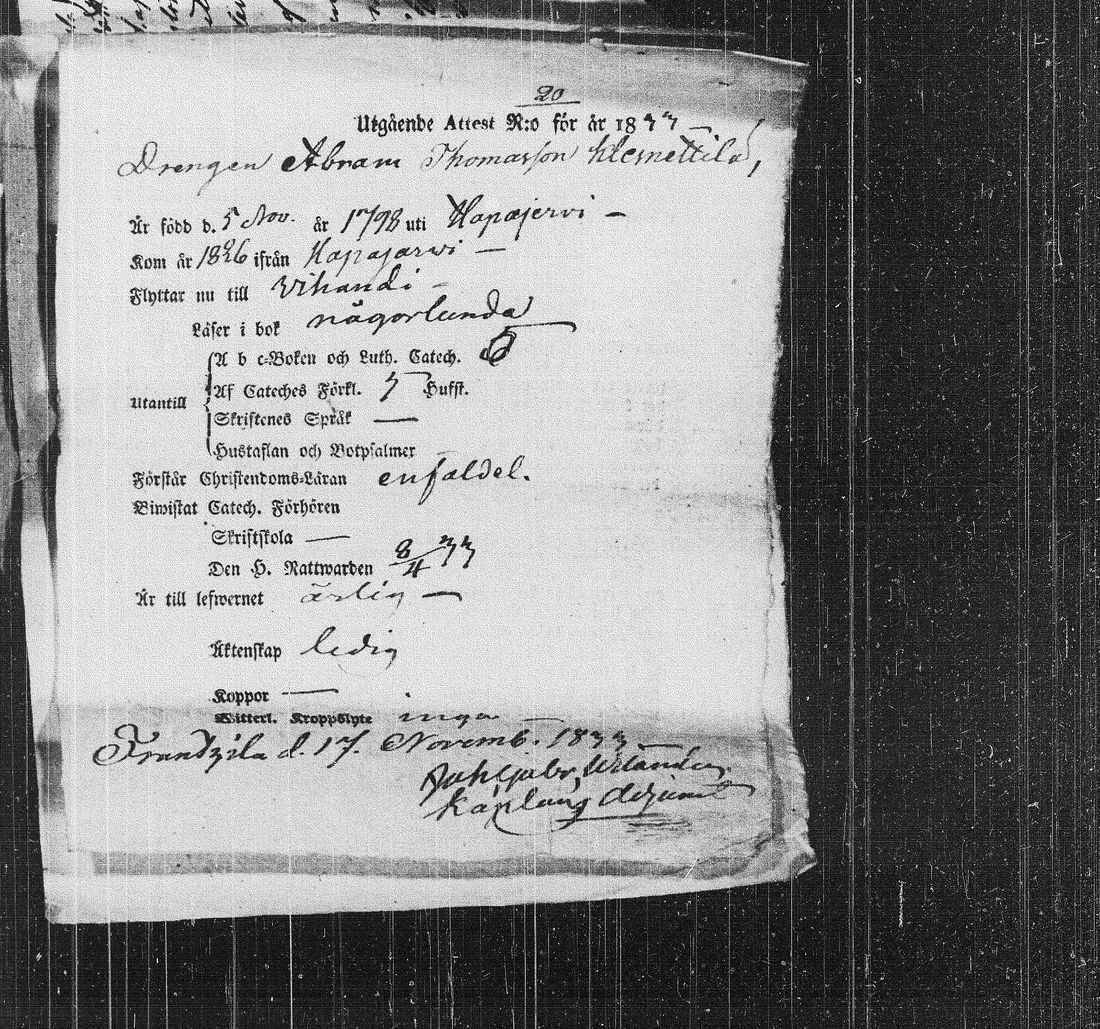 20
Utgående Attest N:o för år 1833
Drengen Abram Thomasson
Är född d. 5 Nov. år 1798 uti Hapajervi —
Kom år 1826 ifrån Hapajärwi —
Flyttar nu till Vihandi —
Läser i bok någorlunda
A b c-Boken och Luth. Catech. 5
Utantill Af Cateches Förkl. 5 Hufst.
Skriftenes Språk —
Hustaflan och Botpsalmer
Förstår Christendoms-Läran enfaldel.
Biwistat Catech. Förhören
Skriftskola —
Den H. Nattwarden 8/4 33
Är till lefwernet ärlig —
Äktenskap ledig
Koppor —
Witterl. Kroppslyte inga —
Frantzila d. 17. Novemb. 1833 —
Welander
Kaplans Adjunct